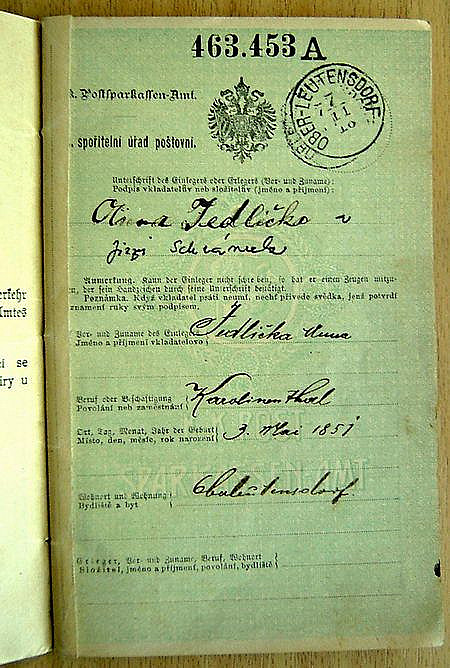 463.453 A
k. Postsparkassen-Amt.
spořitelní úřad poštovní.
OBER-LEUTENSDORF
Unterschrift des Einlegers oder Erlegers (Vor- und Zuname):
Podpis vkladatelův neb složitelův (jméno a příjmení):
Anna Jedličko v
Anmerkung. Kann der Einleger nicht schreiben, so hat er einen Zeugen mitzu-
der sein Handzeichen durch seine Unterschrift bestätigt.
Poznámka. Když vkladatel psáti neumí, nechť přivede svědka, jenž potvrdí
znamení ruky svým podpisem.
Vor- und Zuname des Einlegers
Jméno a příjmení vkladatelovo
Jedlička Anna
Beruf oder Beschäftigung
Povolání neb zaměstnání
Karolinenthal
Ort, Tag, Monat, Jahr der Geburt
Místo, den, měsíc, rok narození
3. Mai 1851
SPARKASSEN AMT
Wohnort und Wohnung
Bydliště a byt
Oberleutensdorf.
Erleger, Vor- und Zuname, Beruf, Wohnort
Složitel, jméno a příjmení, povolání, bydliště
erkehr
Amtes
ci se
iry u